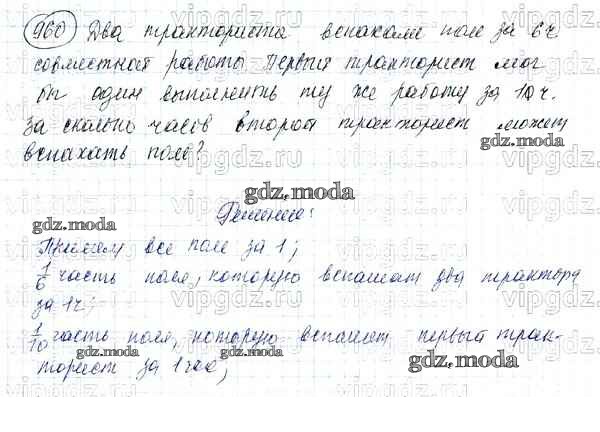 960 Два тракториста вспахали поле за 6ч
совместной работы Первый тракторист мог
бы один выполнить ту же работу за 10ч.
За сколько часов второй тракторист может
вспахать поле?
gdz.moda
Решение:
Примем все поле за 1;
1/6 часть поля, которую вспашат два трактора
за 1ч;
1/10 часть поля, которую вспашет первый трак-
торист за 1 час;